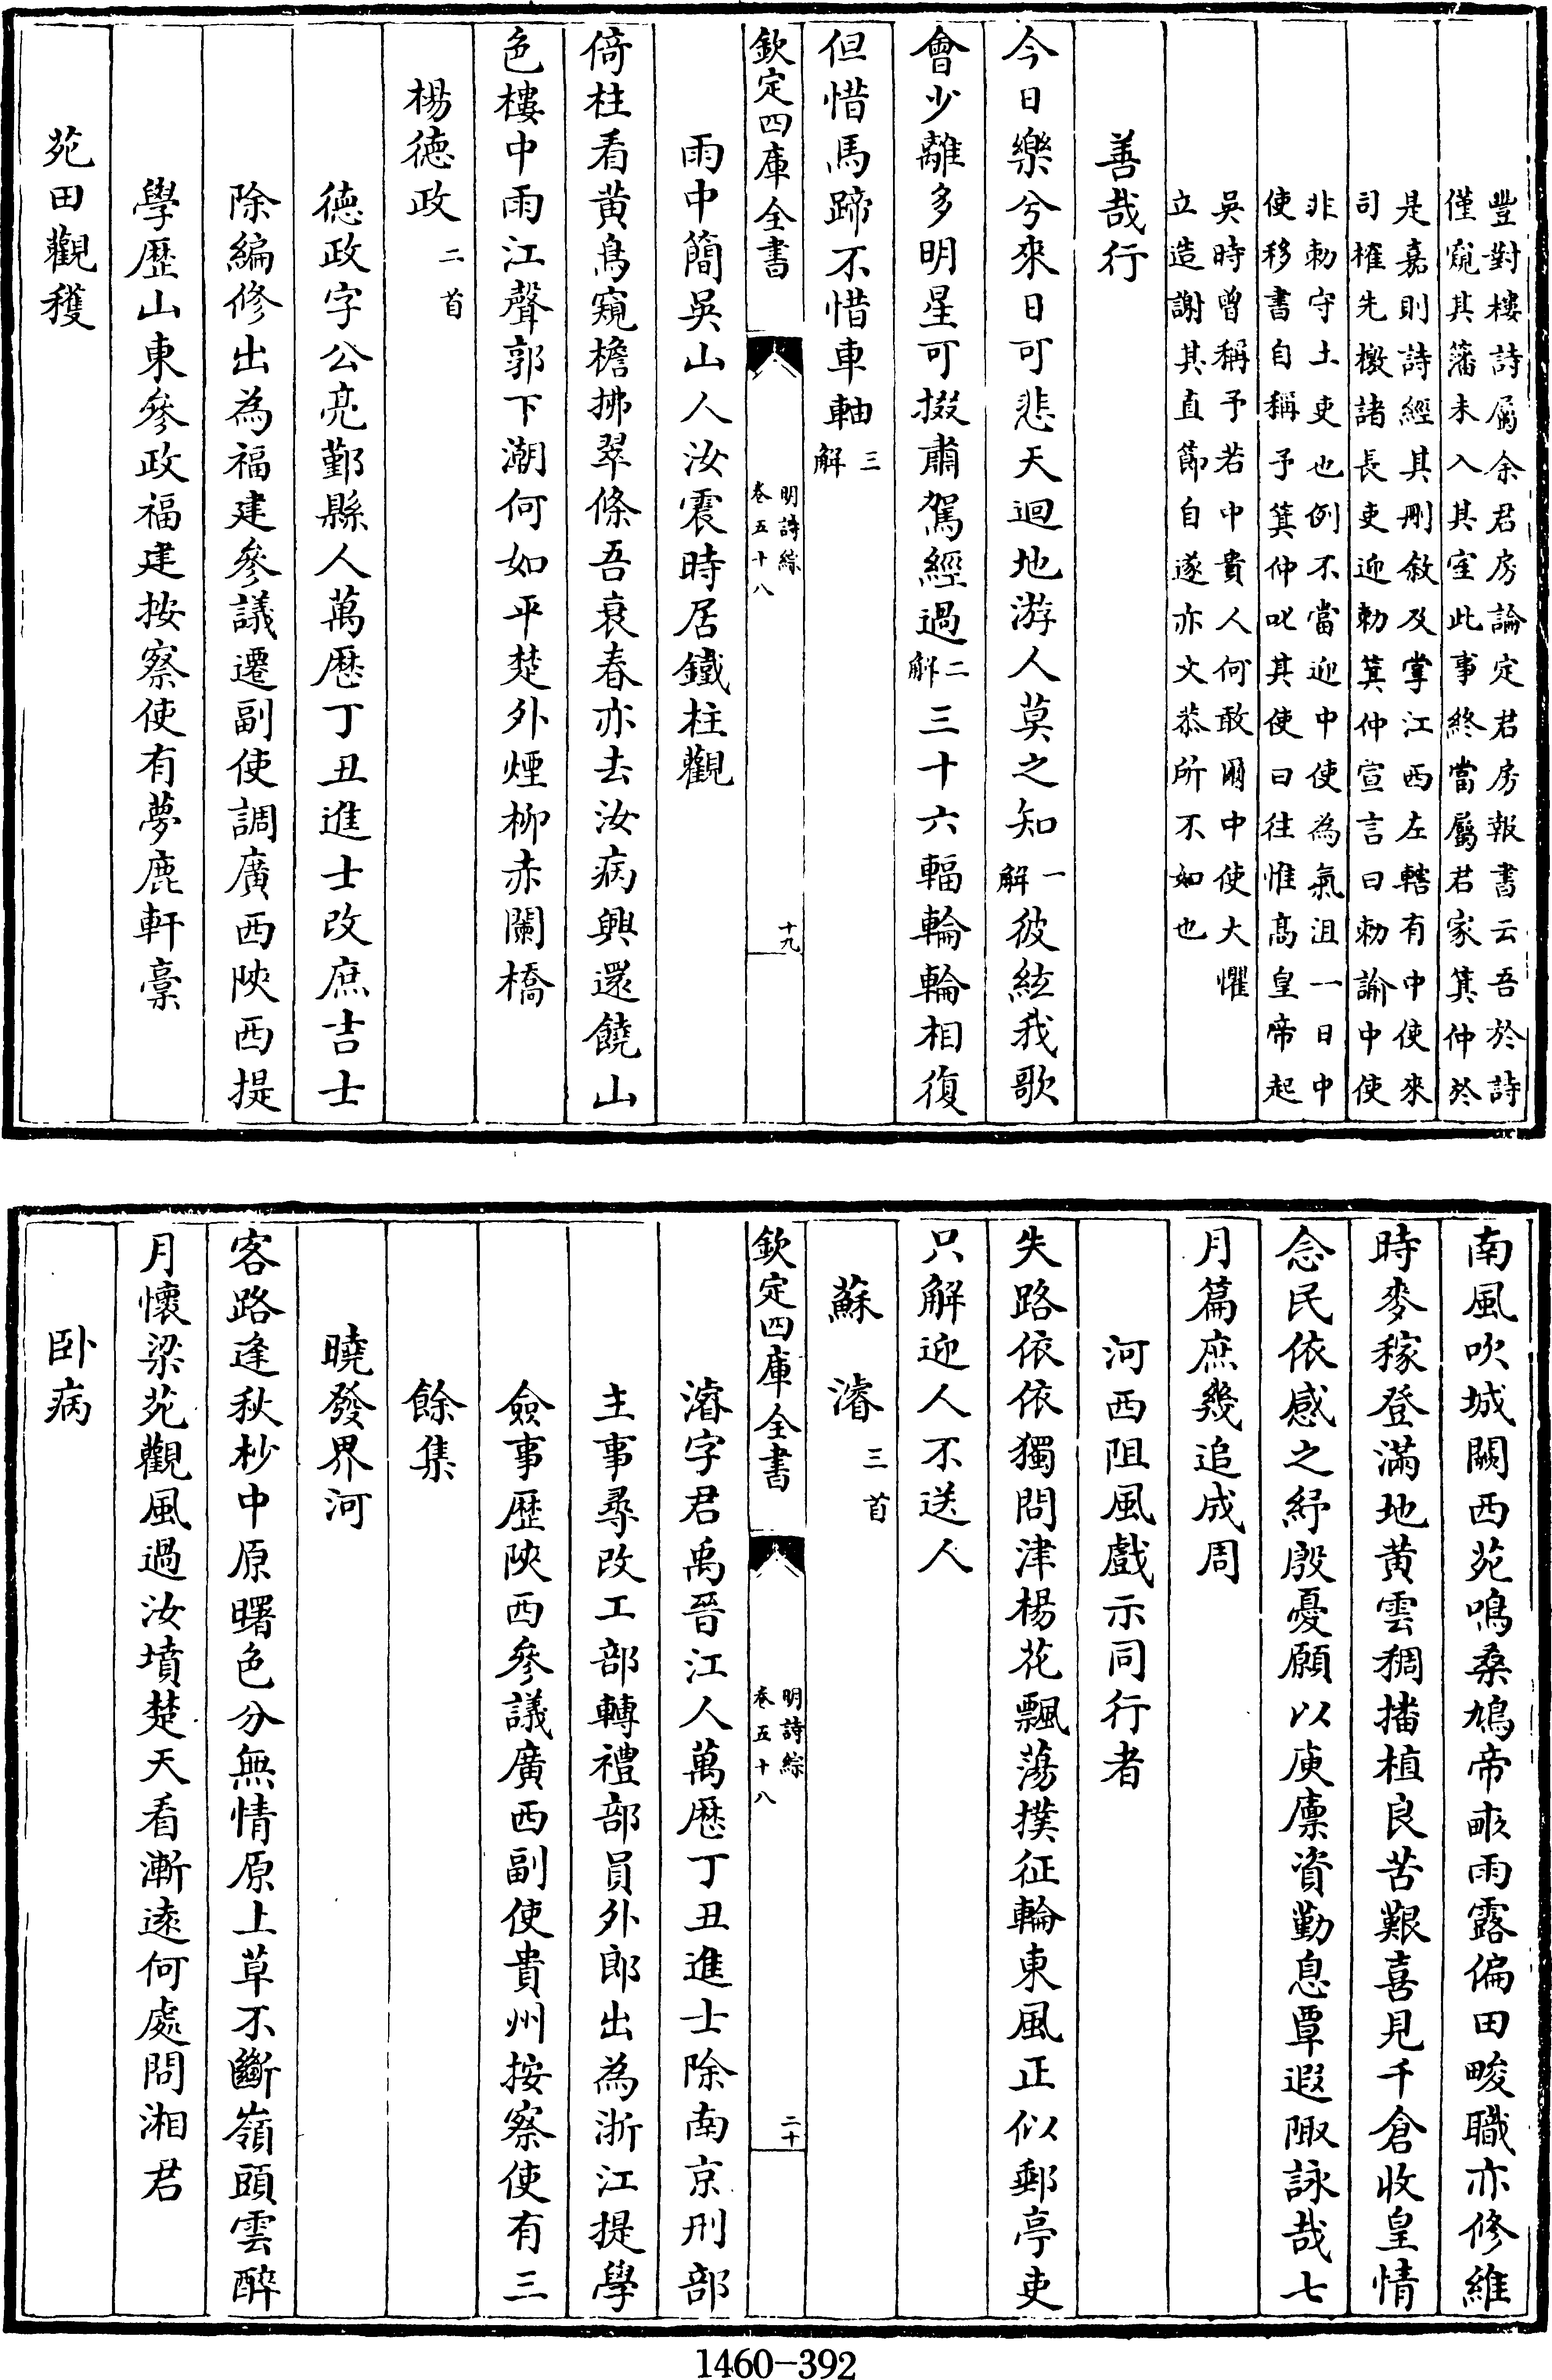 豐對樓詩屬余君房論定君房報書云吾於詩
僅窺其藩未入其室此事終當屬君家箕仲於
是嘉則詩經其刪敘及掌江西左轄有中使來
司榷先檄諸長吏迎勅箕仲宣言曰勅諭中使
非勅守土吏也例不當迎中使為氣沮一日中
使移書自稱予箕仲叱其使曰往惟髙皇帝起
吳時曾稱予若中貴人何敢爾中使大懼
立造謝其直節自遂亦文恭所不如也
善哉行
今日樂兮來日可悲天迴地游人莫之知一解彼絃我歌
會少離多明星可掇肅駕經過二解三十六輻輪輪相復
但惜馬蹄不惜車軸三解
欽定四庫全書
明詩綜
卷五十八
十九
雨中簡吳山人汝震時居鐵柱觀
倚柱看黃鳥窺檐拂翠條吾衰春亦去汝病興還饒山
色樓中雨江聲郭下潮何如平楚外煙柳赤闌橋
楊德政二首
德政字公亮鄞縣人萬歷丁丑進士改庶吉士
除編修出為福建參議遷副使調廣西陜西提
學歷山東參政福建按察使有夢鹿軒稾
苑田觀穫
南風吹城闕西苑鳴桑鳩帝畝雨露偏田畯職亦修維
時麥稼登滿地黃雲稠播植良苦艱喜見千倉收皇情
念民依感之紓殷憂願以庾廩資勤息覃遐陬詠哉七
月篇庶幾追成周
河西阻風戲示同行者
失路依依獨問津楊花飄蕩撲征輪東風正似郵亭吏
只解迎人不送人
蘇濬三首
欽定四庫全書
明詩綜
卷五十八
二十
濬字君禹晉江人萬歷丁丑進士除南京刑部
主事尋改工部轉禮部員外郎出為浙江提學
僉事歷陜西參議廣西副使貴州按察使有三
餘集
曉發界河
客路逢秋杪中原曙色分無情原上草不斷嶺頭雲醉
月懷梁苑觀風過汝墳楚天看漸遠何處問湘君
卧病
1460-392